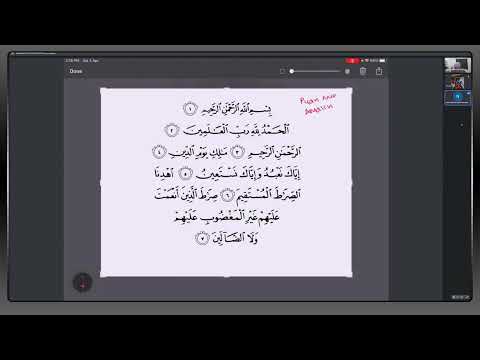 Done
بِسْمِ اللَّهِ الرَّحْمَٰنِ الرَّحِيمِ ١
الْحَمْدُ لِلَّهِ رَبِّ الْعَالَمِينَ ٢
الرَّحْمَٰنِ الرَّحِيمِ ٣ مَالِكِ يَوْمِ الدِّينِ ٤
إِيَّاكَ نَعْبُدُ وَإِيَّاكَ نَسْتَعِينُ ٥ اهْدِنَا
الصِّرَاطَ الْمُسْتَقِيمَ ٦ صِرَاطَ الَّذِينَ أَنْعَمْتَ
عَلَيْهِمْ غَيْرِ الْمَغْضُوبِ عَلَيْهِمْ
وَلَا الضَّالِّينَ ٧